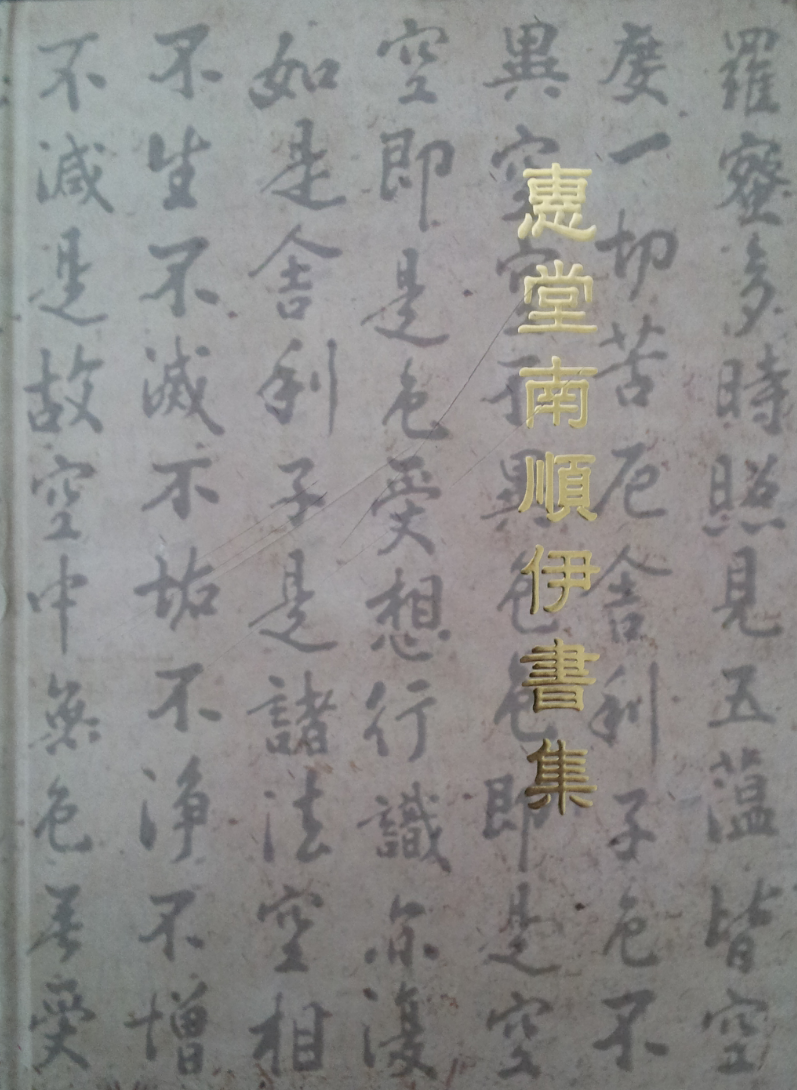 惠堂南順伊書集
羅蜜多時照見五蕰皆空
度一切苦厄舍利子色不
異空空不異色色即是空
空即是色受想行識亦復
如是舍利子是諸法空相
不生不滅不垢不淨不增
不減是故空中無色無受